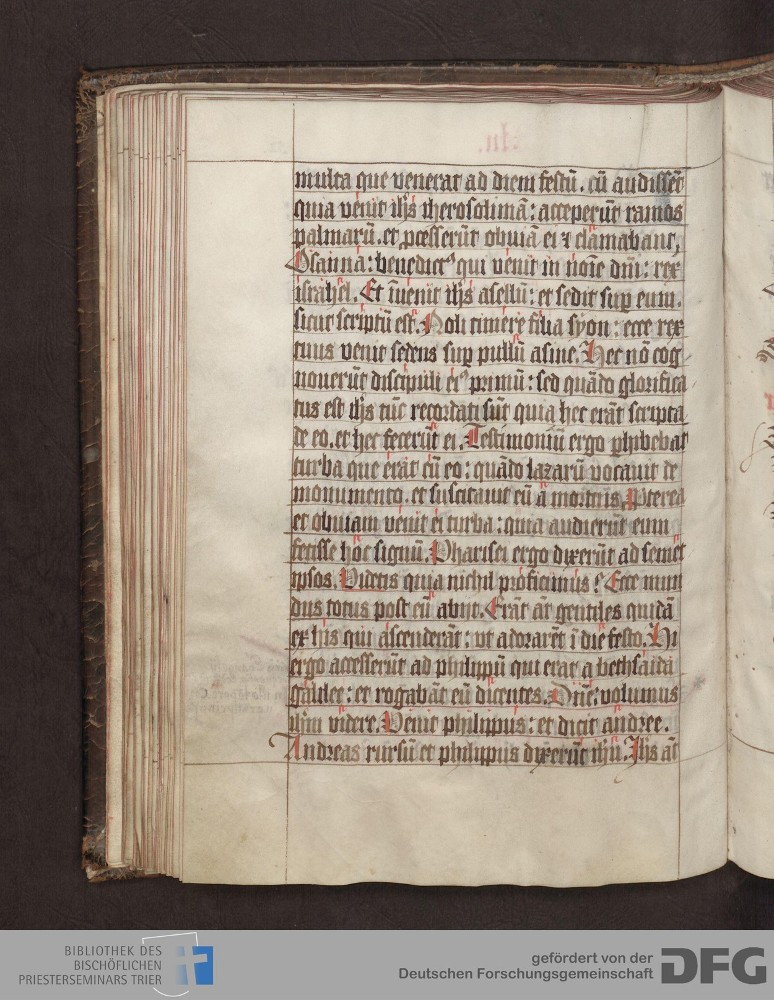 multa que venerat ad diem festū. cū audissēt
quia venit ih̄s iherosolimā: acceperūt ramos
palmarū. et ꝓcesserūt obuiā ei ⁊ clamabant,
Osanna: benedictꝰ qui venit in noīe dn̄i: rex
israhel. Et īuenit ih̄s asellū: et sedit suꝑ eum.
sicut scriptū est. Noli timere filia syon: ecce rex
tuus venit sedens suꝑ pullū asine. Hec nō cog
nouerūt discipuli eiꝰ primū: sed quādo glorifica
tus est ih̄s tūc recordati sūt quia hec erāt scripta
de eo. et hec fecerūt ei. Testimoniū ergo ꝑhibebat
turba que erat cū eo: quādo lazarū vocauit de
monumento. et suscitauit eū a mortuis. Pꝓterea
et obuiam venit ei turba: quia audierūt eum
fecisse hoc signū. Pharisei ergo dixerūt ad semet
ipsos. Videtis quia nichil proficimus? Ecce mun
dus totus post eū abiit. Erāt āt gentiles quidā
ex his qui ascenderāt: vt adorarēt ī die festo. Hi
ergo accesserūt ad philippū qui erat a bethsaida
galilee: et rogabāt eū dicentes. Dn̄e: volumus
ih̄m videre. Venit philippus: et dicit andree.
Andreas rursū et philippus dixerūt ih̄u. Ih̄s āt
BIBLIOTHEK DES
BISCHÖFLICHEN
PRIESTERSEMINARS TRIER
gefördert von der
Deutschen Forschungsgemeinschaft
DFG